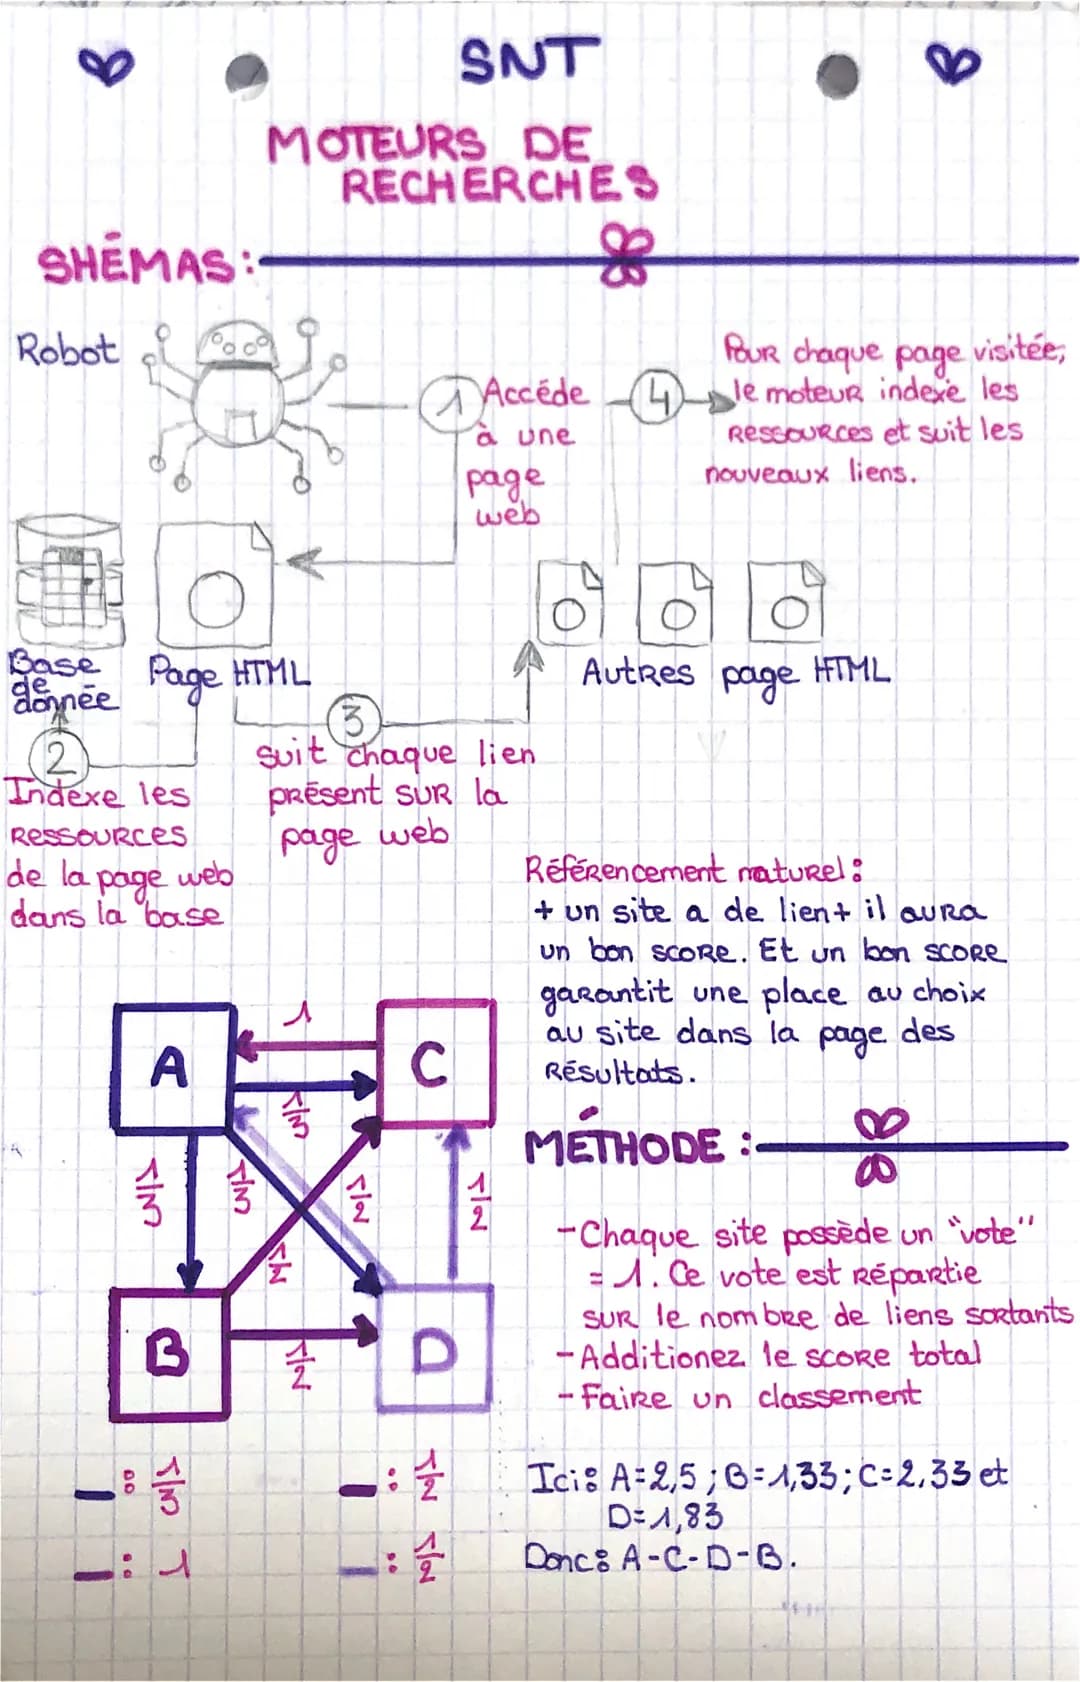 SNT
MOTEURS DE
RECHERCHES
SHÉMAS :
Robot
1 Accéde
à une
page
web
4
Pour chaque page visitée,
le moteur indexe les
ressources et suit les
nouveaux liens.
Base
de
donnée
Page HTML
Autres page HTML
2
Indexe les
ressources
de la page web
dans la base
3
suit chaque lien
présent sur la
page web
Référencement naturel :
+ un site a de lien+ il aura
un bon score. Et un bon score
garantit une place au choix
au site dans la page des
résultats.
A
C
B
D
1
1/3
1/3
1/3
1/2
1/2
1/2
1/2
MÉTHODE :
-Chaque site possède un "vote"
= 1. Ce vote est répartie
sur le nombre de liens sortants
-Additionez le score total
-Faire un classement
: 1/3
: 1/2
: 1
: 1/2
Ici : A=2,5 ; B=1,33 ; C=2,33 et
D=1,83
Donc : A-C-D-B.